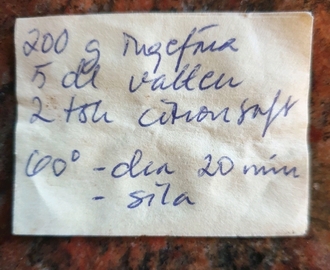 200 g ingefära
5 dl vatten
2 tsk citronsaft
60° - dra 20 min
- sila